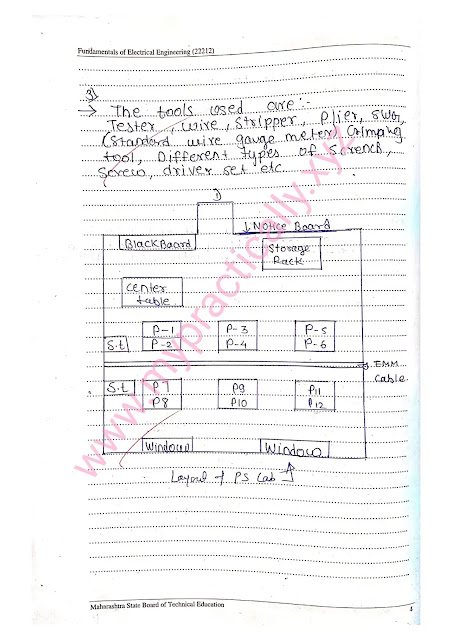 Fundamentals of Electrical Engineering (22212)
3)
→ The tools used are:-
Tester, wire, stripper, plier, swg,
(Standard wire gauge meter) Crimping
tool, Different types of
screw, driver set etc
1)
↓ Notice Board
BlackBoard
Storage
Rack
center
table
P-1 P-3 P-5
S.t P-2 P-4 P-6
→ EMM
Cable
S.t P7 P9 P11
P8 P10 P12
Window Window
Layout of PS Lab
www.mypractically.xyz
Maharashtra State Board of Technical Education 4